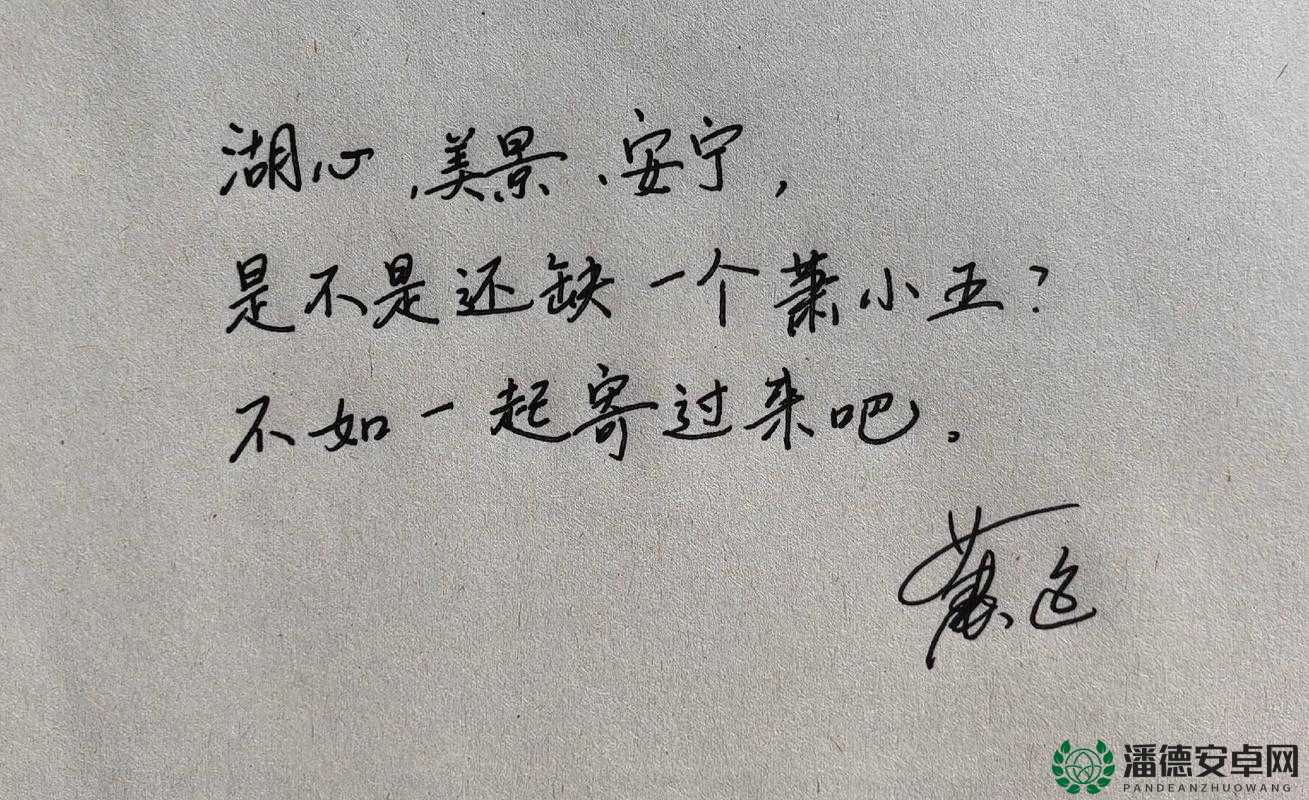 湖心、美景、安宁，
是不是还缺一个萧小五？
不如一起寄过来吧。
萧逸
潘德安卓网
PANDEANZHUOWANG